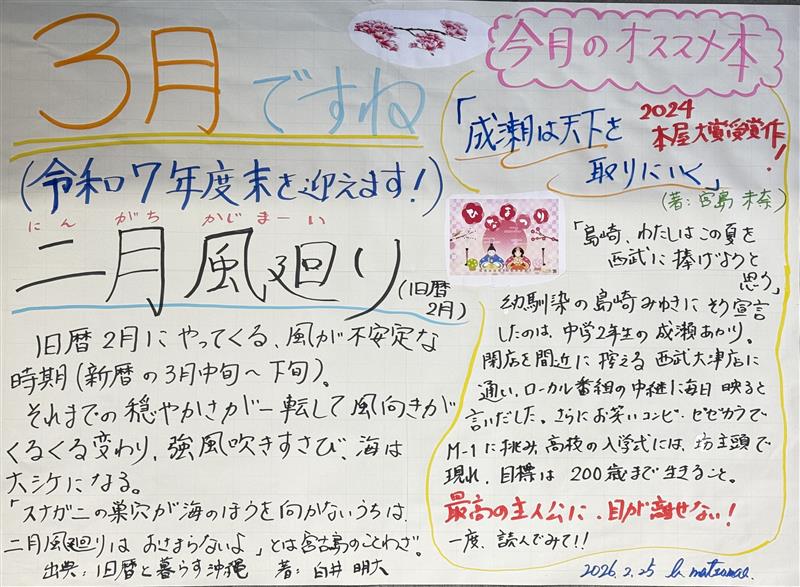 3月ですね
(令和7年度末を迎えます!)
にんがちかじまーい
二月風廻り(旧暦2月)
旧暦2月にやってくる、風が不安定な
時期(新暦の3月中旬〜下旬)。
それまでの穏やかさが一転して風向きが
くるくる変わり、強風吹きすさび、海は
大シケになる。
「スナガニの巣穴が海のほうを向かないうちは、
二月風廻りはおさまらないよ」とは宮古島のことわざ。
出典:旧暦と暮らす沖縄 著:白井明大
今月のオススメ本
2024
本屋大賞受賞作!
「成瀬は天下を
取りにいく」
(著:宮島未奈)
ひなまつり
「島崎、わたしはこの夏を
西武に捧げようと
思う」
幼馴染の島崎みゆきにそう宣言
したのは、中学2年生の成瀬あかり。
閉店を間近に控える西武大津店に
通い、ローカル番組の中継に毎日映ると
言いだした。さらにお笑いコンビ・ゼゼカラで
M-1に挑み、高校の入学式には、坊主頭で
現れ、目標は200歳まで生きること。
最高の主人公に、目が離せない!
一度、読んでみて!!
2026.2.25